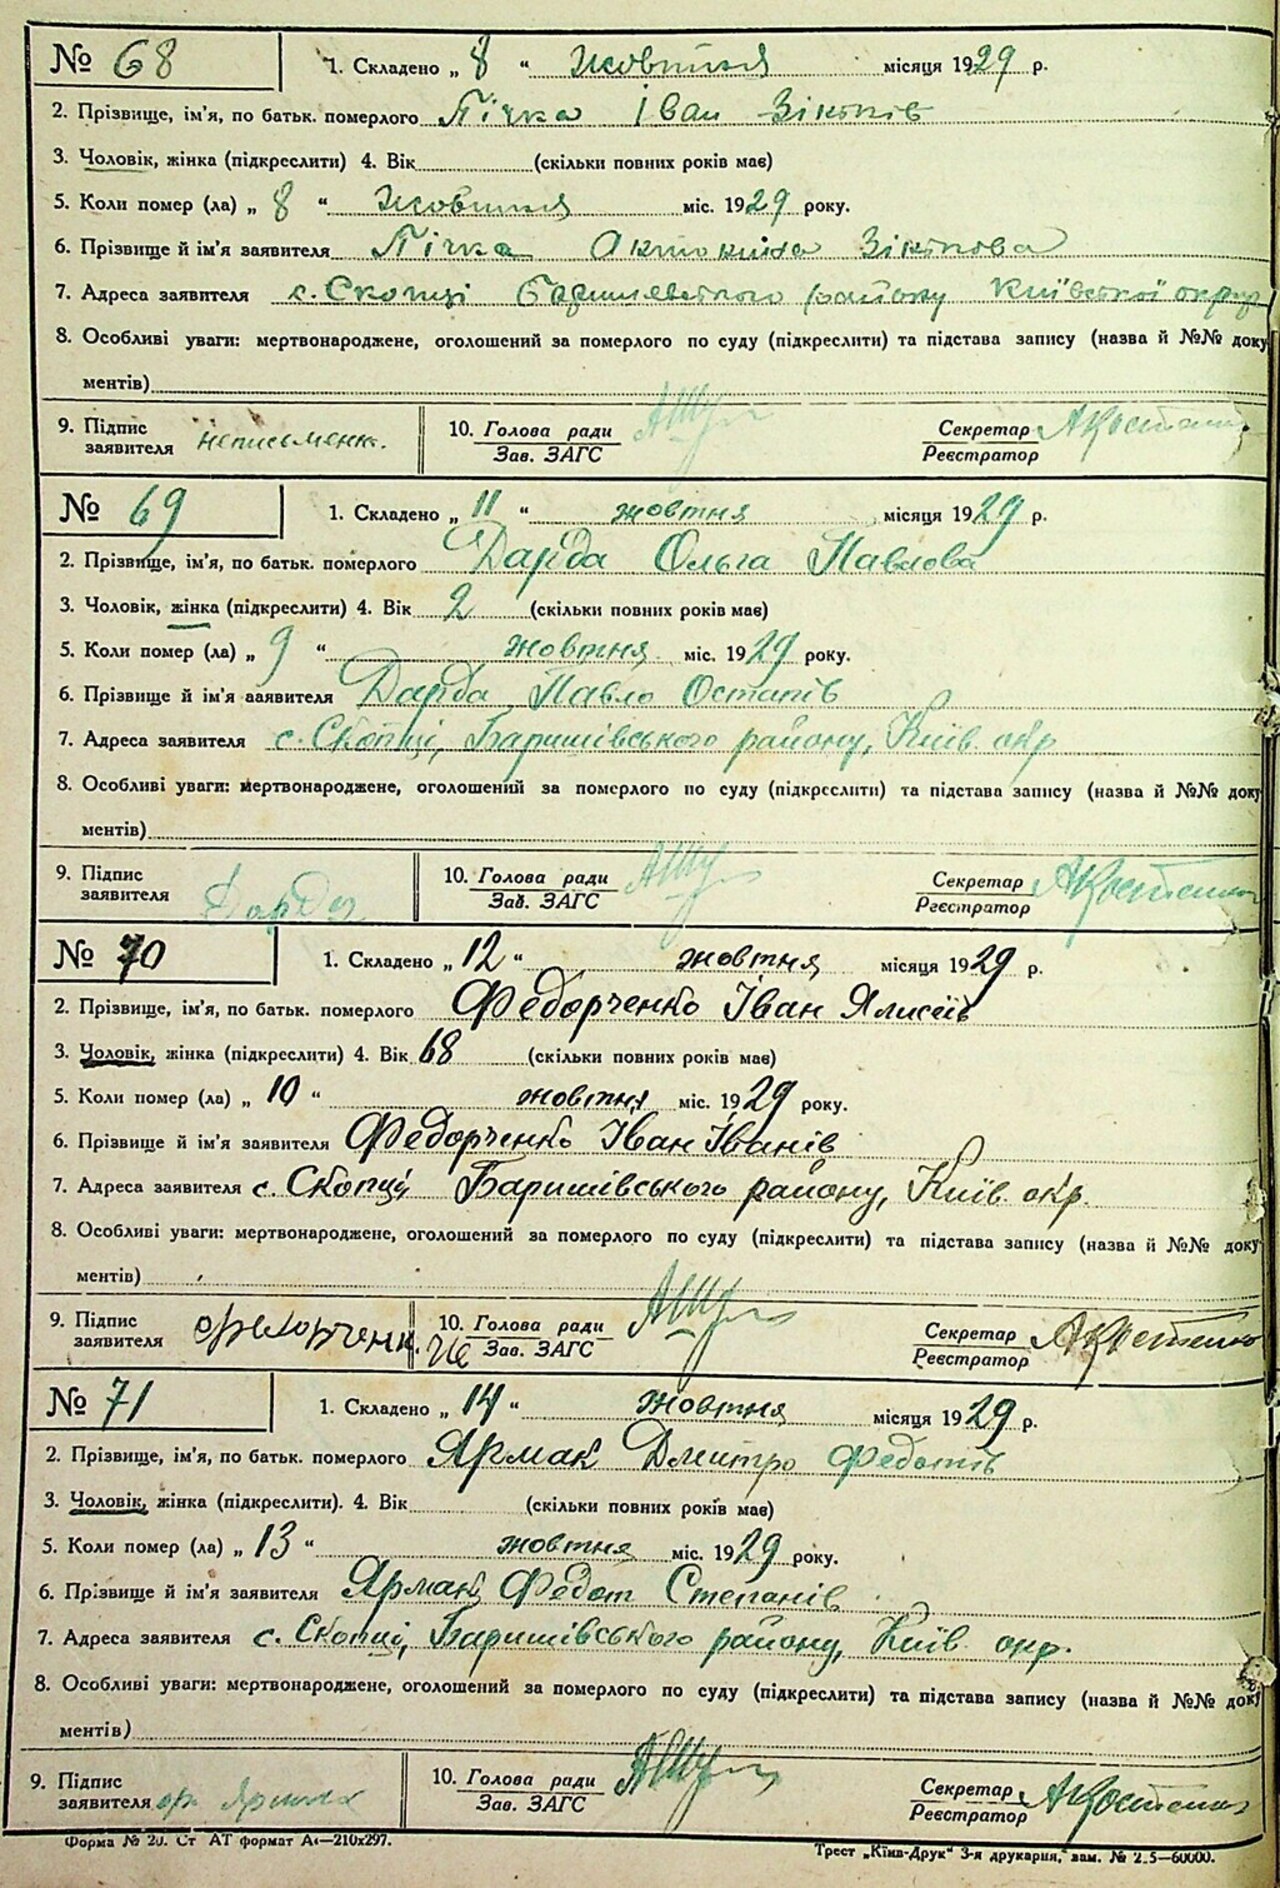 № 68 1. Складено „ 8 “ жовтня місяця 1929 р.
2. Прізвище, ім'я, по батьк. померлого Пічка Іван
3. Чоловік, жінка (підкреслити) 4. Вік (скільки повних років має)
5. Коли помер (ла) „ 8 “ жовтня міс. 1929 року.
6. Прізвище й ім'я заявителя Пічка
7. Адреса заявителя с. Скопці району Київської округи
8. Особливі уваги: мертвонароджене, оголошений за померлого по суду (підкреслити) та підстава запису (назва й №№ доку
ментів)
9. Підпис заявителя неписьменн. 10. Голова ради Зав. ЗАГС Секретар Реєстратор
№ 69 1. Складено „ 11 “ жовтня місяця 1929 р.
2. Прізвище, ім'я, по батьк. померлого Дарда Ольга Павлова
3. Чоловік, жінка (підкреслити) 4. Вік 2 (скільки повних років має)
5. Коли помер (ла) „ 9 “ жовтня міс. 1929 року.
6. Прізвище й ім'я заявителя Дарда Павло Остапів
7. Адреса заявителя с. Скопці, Баришівського району, Київ. окр
8. Особливі уваги: мертвонароджене, оголошений за померлого по суду (підкреслити) та підстава запису (назва й №№ доку
ментів)
9. Підпис заявителя Дарда 10. Голова ради Зав. ЗАГС Секретар Реєстратор АКостенко
№ 70 1. Складено „ 12 “ жовтня місяця 1929 р.
2. Прізвище, ім'я, по батьк. померлого Федорченко Іван Ялисеїв
3. Чоловік, жінка (підкреслити) 4. Вік 68 (скільки повних років має)
5. Коли помер (ла) „ 10 “ жовтня міс. 1929 року.
6. Прізвище й ім'я заявителя Федорченко Іван Іванів
7. Адреса заявителя с. Скопці Баришівського району, Київ. окр.
8. Особливі уваги: мертвонароджене, оголошений за померлого по суду (підкреслити) та підстава запису (назва й №№ доку
ментів)
9. Підпис заявителя 10. Голова ради Зав. ЗАГС Секретар Реєстратор АКостенко
№ 71 1. Складено „ 14 “ жовтня місяця 1929 р.
2. Прізвище, ім'я, по батьк. померлого Ярмак Дмитро Федотів
3. Чоловік, жінка (підкреслити). 4. Вік (скільки повних років має)
5. Коли помер (ла) „ 13 “ жовтня міс. 1929 року.
6. Прізвище й ім'я заявителя Ярмак Федот Степанів
7. Адреса заявителя с. Скопці, Баришівського району, Київ. окр.
8. Особливі уваги: мертвонароджене, оголошений за померлого по суду (підкреслити) та підстава запису (назва й №№ доку
ментів)
9. Підпис заявителя 10. Голова ради Зав. ЗАГС Секретар Реєстратор АКостенко
Форма № 20. Ст АТ формат А4—210х297. Трест „Київ-Друк“ 3-я друкарня, зам. №